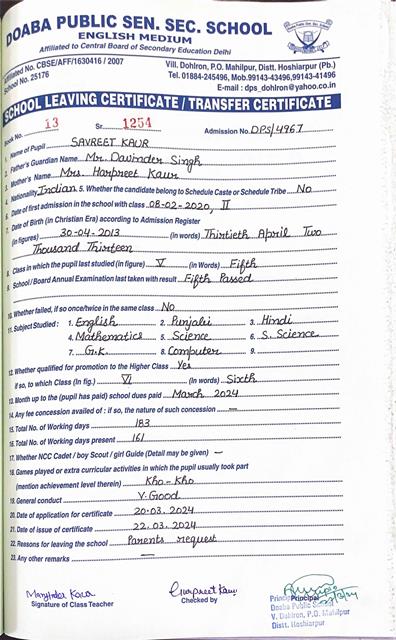 DOABA PUBLIC SEN. SEC. SCHOOL
ENGLISH MEDIUM
Affiliated to Central Board of Secondary Education Delhi
Affiliated No. CBSE/AFF/1630416 / 2007
School No. 25176
Vill. Dohlron, P.O. Mahilpur, Distt. Hoshiarpur (Pb.)
Tel. 01884-245496, Mob.99143-43496,99143-41496
E-mail : dps_dohlron@yahoo.co.in
SCHOOL LEAVING CERTIFICATE / TRANSFER CERTIFICATE
Book No. 13 Sr. 1254 Admission No. DPS/4967
1. Name of Pupil SAVREET KAUR
2. Father's Guardian Name Mr. Davinder Singh
3. Mother's Name Mrs. Harpreet Kaur
4. Nationality Indian 5. Whether the candidate belong to Schedule Caste or Schedule Tribe No
6. Date of first admission in the school with class 08-02-2020, II
7. Date of Birth (in Christian Era) according to Admission Register
(in figures) 30-04-2013 (in words) Thirtieth April Two
Thousand Thirteen
8. Class in which the pupil last studied (in figure) V (in Words) Fifth
9. School / Board Annual Examination last taken with result Fifth Passed
10. Whether failed, if so once/twice in the same class No
11. Subject Studied : 1. English 2. Punjabi 3. Hindi
4. Mathematics 5. Science 6. S. Science
7. G.K. 8. Computer 9.
12. Whether qualified for promotion to the Higher Class Yes
If so, to which Class (In fig.) VI (in words) Sixth
13. Month up to the (pupil has paid) school dues paid March 2024
14. Any fee concession availed of : if so, the nature of such concession —
15. Total No. of Working days 183
16. Total No. of Working days present 161
17. Whether NCC Cadet / boy Scout / girl Guide (Detail may be given) —
18. Games played or extra curricular activities in which the pupil usually took part
(mention achievement level therein) Kho-Kho
19. General conduct V. Good
20. Date of application for certificate 20.03.2024
21. Date of issue of certificate 22.03.2024
22. Reasons for leaving the school Parents request
23. Any other remarks —
Signature of Class Teacher
Checked by
Principal
Doaba Public
V. Dohlron, P.O. Mahilpur
Distt. Hoshiarpur